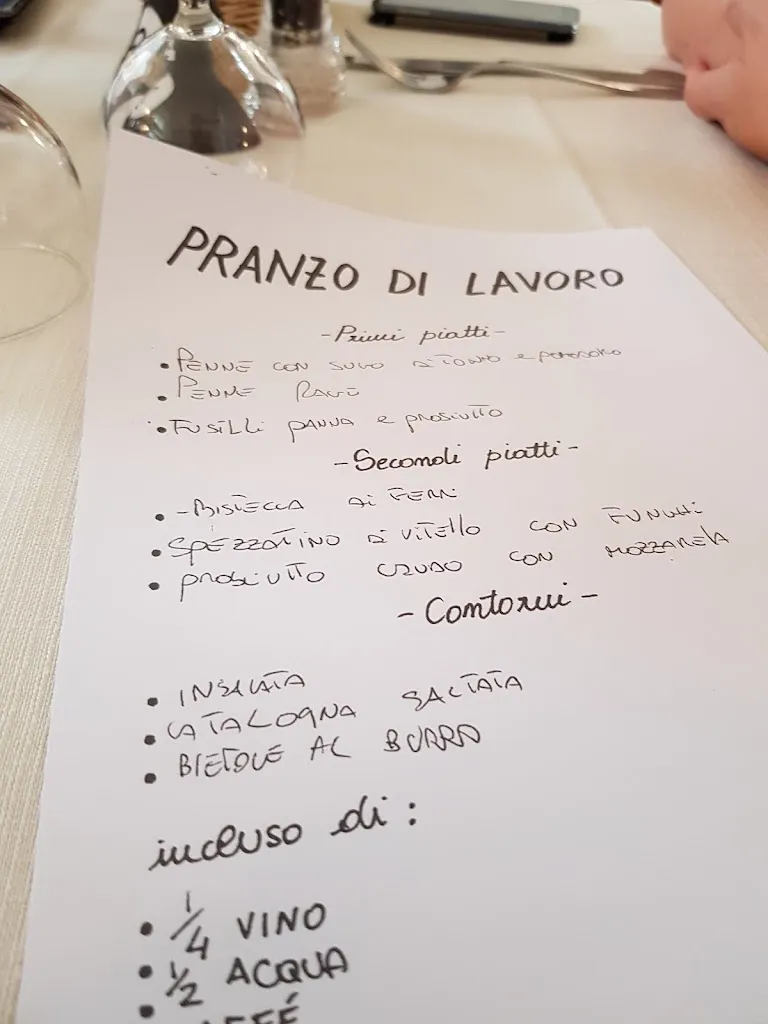 PRANZO DI LAVORO
-Primi piatti-
• PENNE CON SUGO DI TONNO e POMODORO
• PENNE RAGÙ
• FUSILLI PANNA e PROSCIUTTO
-Secondi piatti-
• -BISTECCA AI FERRI
• SPEZZATINO DI VITELLO CON FUNGHI
• PROSCIUTTO CRUDO CON MOZZARELLA
-Contorni-
• INSALATA
• CATALOGNA SALTATA
• BIETOLE AL BURRO
incluso di:
• 1/4 VINO
• 1/2 ACQUA